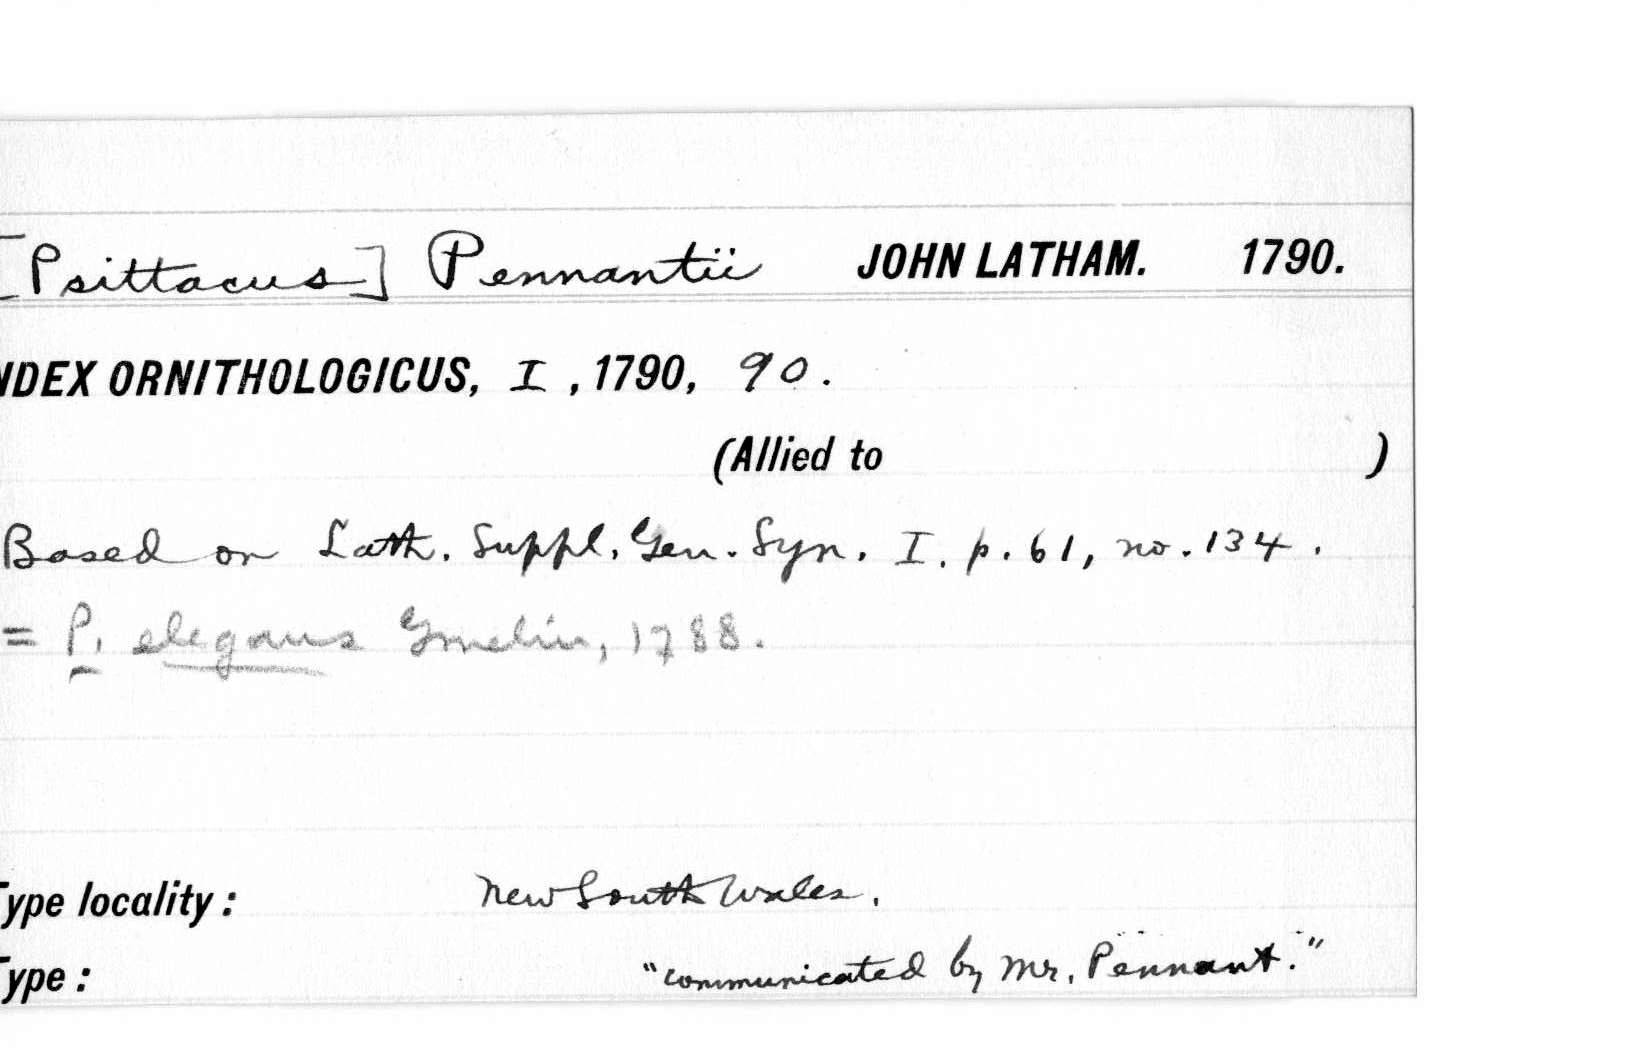 [Psittacus] Pennantii JOHN LATHAM. 1790.
NDEX ORNITHOLOGICUS, I, 1790, 90.
(Allied to )
Based on Lath. Suppl. Gen. Syn. I. p. 61, no. 134.
= P. elegans Gmelin, 1788.
Type locality: New South Wales.
Type: "communicated by Mr. Pennant."